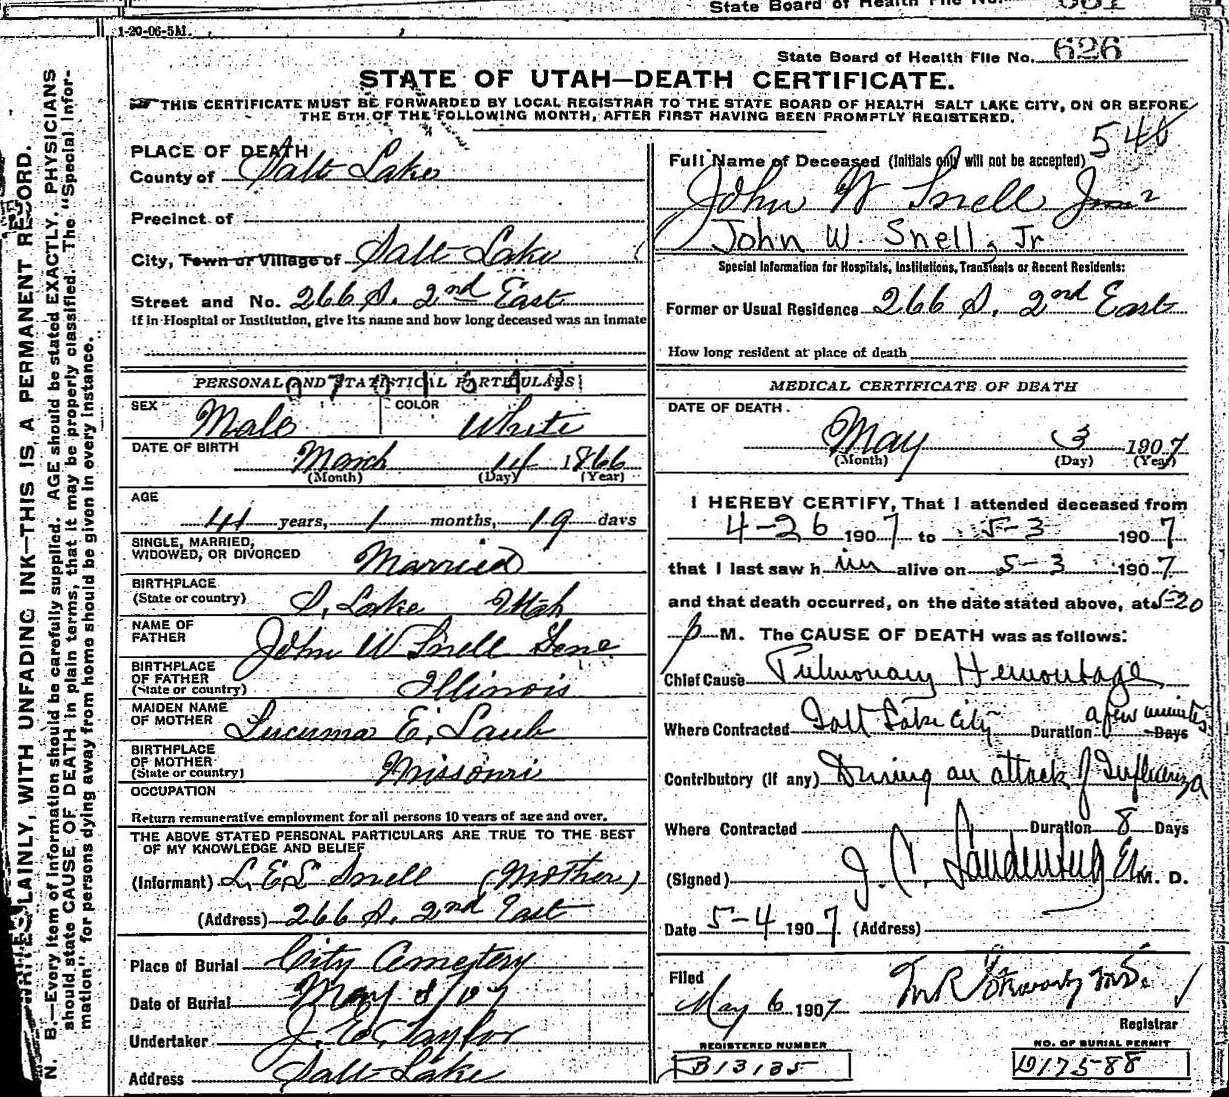 State Board of Health File No. 661
1-20-06-5M.
State Board of Health File No. 626
STATE OF UTAH—DEATH CERTIFICATE.
THIS CERTIFICATE MUST BE FORWARDED BY LOCAL REGISTRAR TO THE STATE BOARD OF HEALTH SALT LAKE CITY, ON OR BEFORE
THE 5TH OF THE FOLLOWING MONTH, AFTER FIRST HAVING BEEN PROMPTLY REGISTERED.
N. B.—Every item of information should be carefully supplied. AGE should be stated EXACTLY. PHYSICIANS
should state CAUSE OF DEATH in plain terms, that it may be properly classified. The "Special Infor-
mation" for persons dying away from home should be given in every instance.
PLAINLY, WITH UNFADING INK—THIS IS A PERMANENT RECORD.
PLACE OF DEATH
County of Salt Lake
Precinct of
City, Town or Village of Salt Lake
Street and No. 266 S. 2nd East
If in Hospital or Institution, give its name and how long deceased was an inmate
PERSONAL AND STATISTICAL PARTICULARS
SEX Male COLOR White
DATE OF BIRTH March 14 1866
(Month) (Day) (Year)
AGE
41 years, 1 months, 19 days
SINGLE, MARRIED,
WIDOWED, OR DIVORCED Married
BIRTHPLACE
(State or country) S. Lake Utah
NAME OF
FATHER John W Snell Sene
BIRTHPLACE
OF FATHER
(State or country) Illinois
MAIDEN NAME
OF MOTHER E. Laub
BIRTHPLACE
OF MOTHER
(State or country) Missouri
OCCUPATION
Return remunerative employment for all persons 10 years of age and over.
THE ABOVE STATED PERSONAL PARTICULARS ARE TRUE TO THE BEST
OF MY KNOWLEDGE AND BELIEF
(Informant) Snell (Mother)
(Address) 266 S. 2nd East
Place of Burial City Cemetery
Date of Burial May
Undertaker J. E. Taylor
Address Salt Lake
540
Full Name of Deceased (Initials only will not be accepted)
John W Snell
John W. Snell, Jr
Special Information for Hospitals, Institutions, Transients or Recent Residents:
Former or Usual Residence 266 S. 2nd East
How long resident at place of death
MEDICAL CERTIFICATE OF DEATH
DATE OF DEATH.
May 3 1907
(Month) (Day) (Year)
I HEREBY CERTIFY, That I attended deceased from
4-26 1907 to 5-3 1907
that I last saw him alive on 5-3 1907
and that death occurred, on the date stated above, at 5-20
p M. The CAUSE OF DEATH was as follows:
Chief Cause Pulmonary Hemorrhage
Where Contracted Salt Lake City Duration a few minutes Days
Contributory (if any) During an attack of Influenza
Where Contracted Duration 8 Days
(Signed) J. C. M. D.
Date 5-4 1907 (Address)
Filed
May 6 1907
Registrar
REGISTERED NUMBER
B13135
NO. OF BURIAL PERMIT